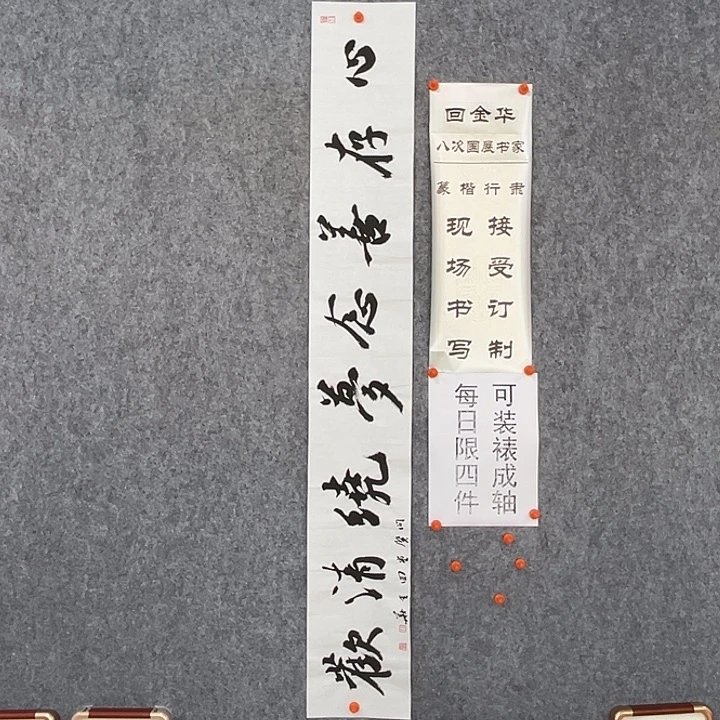 心存善念夢繞清歡
回金华
八次国展书家
篆楷行隶
接受订制
现场书写
可装裱成轴
每日限四件